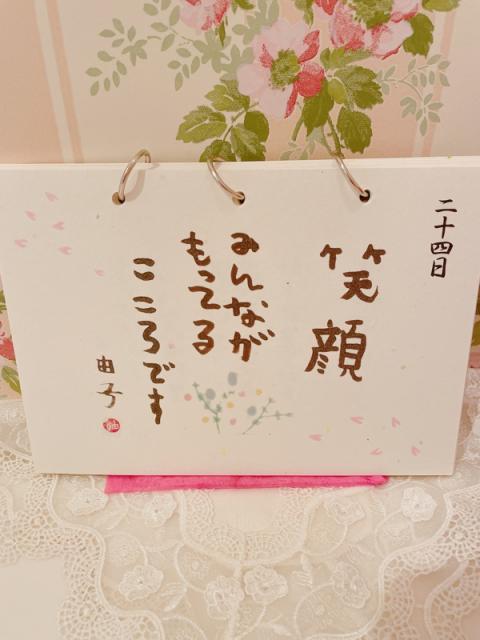 二十四日
笑顔
みんなが
もってる
こころです
由子